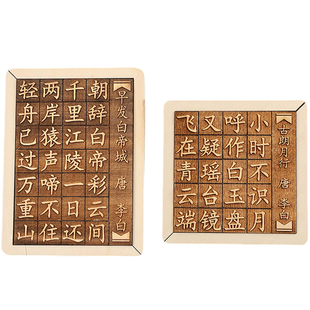 早发白帝城 唐 李白
朝辞白帝彩云间
千里江陵一日还
两岸猿声啼不住
轻舟已过万重山
古朗月行 唐 李白
小时不识月
呼作白玉盘
又疑瑶台镜
飞在青云端